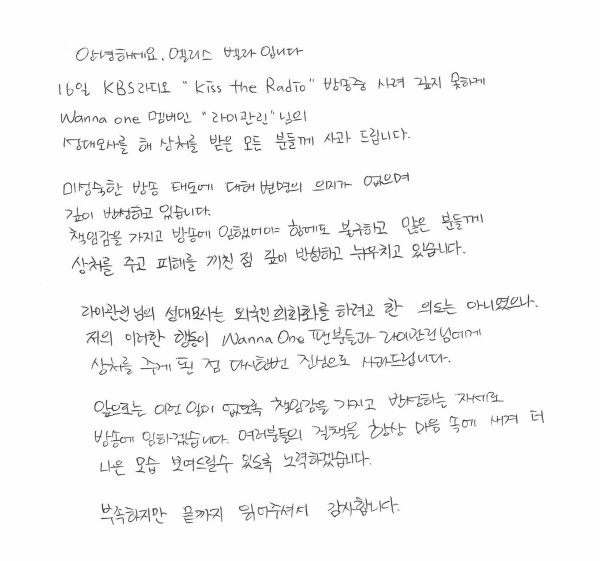 안녕하세요. 엘리스 벨라입니다
16일 KBS라디오 "Kiss the Radio" 방송중 사려 깊지 못하게
Wanna one 멤버인 "라이관린"님의
성대모사를 해 상처를 받은 모든 분들께 사과 드립니다.
미성숙한 방송 태도에 대해 변명의 의미가 없으며
깊이 반성하고 있습니다.
책임감을 가지고 방송에 임했어야 함에도 불구하고 많은 분들께
상처를 주고 피해를 끼친 점 깊이 반성하고 뉘우치고 있습니다.
라이관린님의 성대모사는 외국인 희화화를 하려고 한 의도는 아니였으나.
저의 이러한 행동이 Wanna One 팬분들과 라이관린님에게
상처를 주게 된 점 다시한번 진심으로 사과드립니다.
앞으로는 이런 일이 없도록 책임감을 가지고 반성하는 자세로
방송에 임하겠습니다. 여러분들의 질책을 항상 마음 속에 새겨 더
나은 모습 보여드릴수 있도록 노력하겠습니다.
부족하지만 끝까지 읽어주셔서 감사합니다.